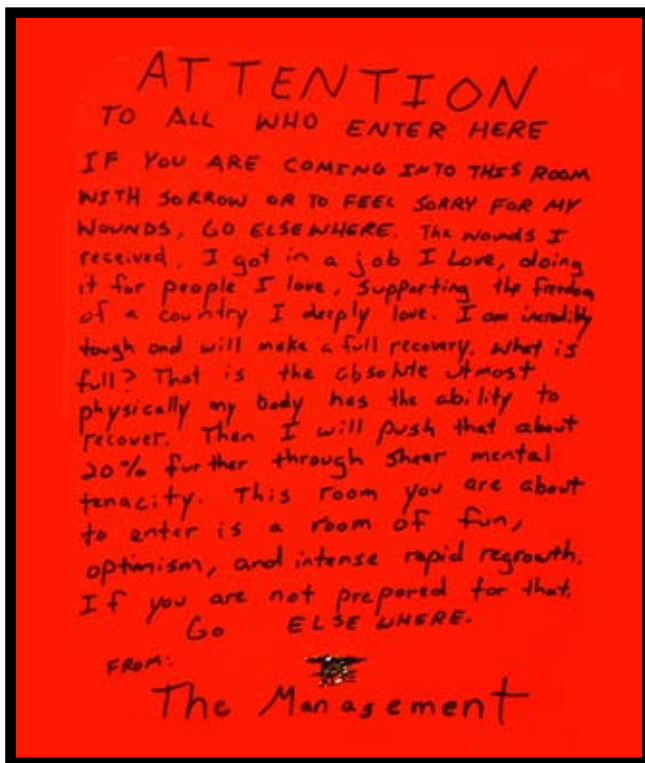 ATTENTION
TO ALL WHO ENTER HERE
IF YOU ARE COMING INTO THIS ROOM
WITH SORROW OR TO FEEL SORRY FOR MY
WOUNDS, GO ELSEWHERE. The wounds I
received, I got in a job I Love, doing
it for people I love, supporting the freedom
of a country I deeply love. I am incredibly
tough and will make a full recovery. What is
full? That is the absolute utmost
physically my body has the ability to
recover. Then I will push that about
20% further through sheer mental
tenacity. This room you are about
to enter is a room of fun,
optimism, and intense rapid regrowth.
If you are not prepared for that,
Go ELSEWHERE.
FROM:
The Management